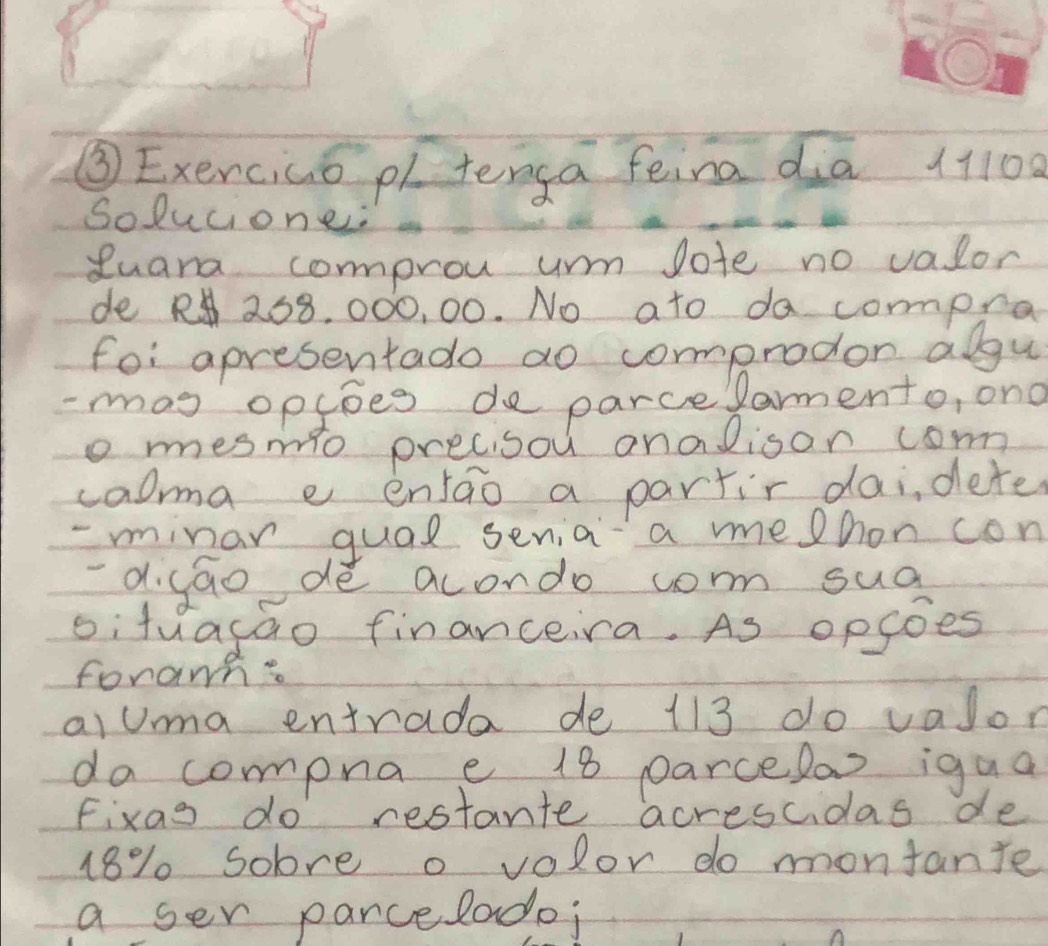 ③ Exercicio p/ terça feira dia 11/02
Solucione:
Luana comprou um lote no valor
de R$ 258.000,00. No ato da compra
foi apresentado ao comprador algu
-mas opções de parcelamento, ond
o mesmo precisou analisar com
calma e então a partir dai, dete
-minar qual seria a melhor con
-dição de acordo com sua
situação financeira. As opções
foram:
a) Uma entrada de 1/3 do valor
da compra e 18 parcelas igua
fixas do restante acrescidas de
18% sobre o valor do montante
a ser parcelado;